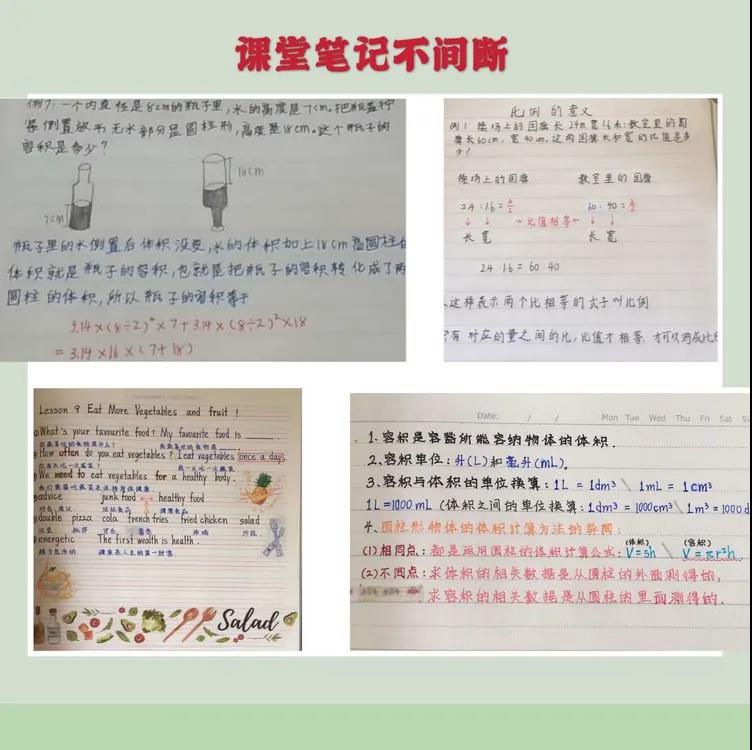 课堂笔记不间断
例7: 一个内直径是8cm的瓶子里,水的高度是7cm,把瓶盖拧
紧倒置放平,无水部分是圆柱形,高度是18cm。这个瓶子的
容积是多少?
18cm
7cm
瓶子里的水倒置后体积没变,水的体积加上18cm高圆柱的
体积就是瓶子的容积,也就是把瓶子的容积转化成了两
圆柱的体积,所以瓶子的容积等于
3.14×(8÷2)²×7+3.14×(8÷2)²×18
=3.14×16×(7+18)
比例的意义
例1 操场上的国旗长2.4m宽1.6米;教室里的国
旗长60cm,宽40cm.这两面国旗长和宽的比值是多
少?
操场上的国旗 教室里的国旗
2.4:1.6=3/2 60:40=3/2
↓ ↓ →比值相等← ↓ ↓
长 宽 长 宽
2.4:1.6=60:40
这样表示两个比相等的式子叫比例
只有对应的量之间的比,比值才相等,才可以组成比
Lesson 9 Eat More Vegetables and fruit!
What's your favourite food? My favourite food is ____.
你最喜欢的食物是什么? 我最喜欢的食物是
How often do you eat vegetables? I eat vegetables once a day.
你多久吃一次蔬菜? 我一天吃一次蔬菜
We need to eat vegetables for a healthy body.
我们需要吃蔬菜来保持身体健康.
advice junk food ↔ healthy food
劝告,建议 垃圾食品 健康食品
double pizza cola french fries fried chicken salad
汉堡 披萨 可乐 薯条 炸鸡 沙拉
energetic The first wealth is health.
精力充沛的 健康是人生的第一财富
Salad
Date: / / Mon Tue Wed Thu Fri Sat Su
1.容积是容器所能容纳物体的体积.
2.容积单位:升(L)和毫升(mL)。
3.容积与体积的单位换算:1L=1dm³ \ 1mL=1cm³
1L=1000mL (体积之间的单位换算:1dm³=1000cm³ \ 1m³=1000d
4.圆柱形物体的体积计算方法的异同:
(体积) (容积)
(1)相同点:都是运用圆柱的体积计算公式:V=sh \ V=πr²h.
(2)不同点:求体积的相关数据是从圆柱的外面测得的,
求容积的相关数据是从圆柱的里面测得的.